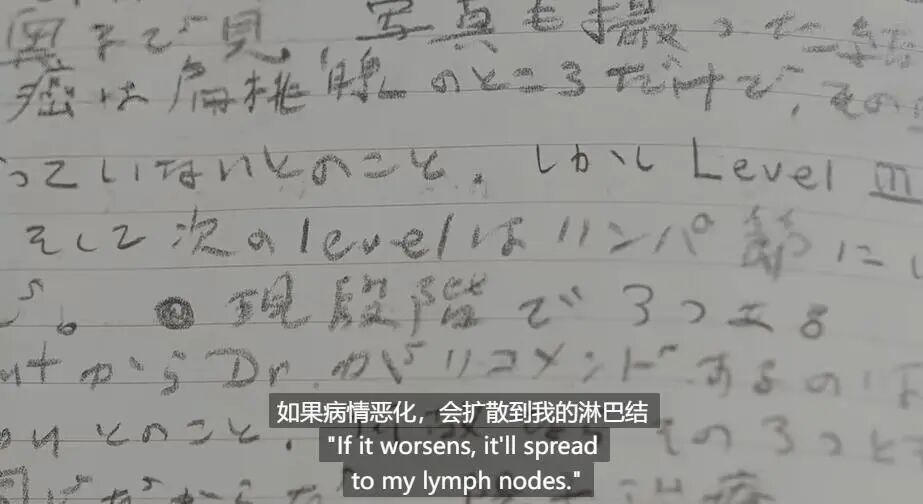 真で見、写真も撮った結
癌は扁桃腺のところだけで、その
っていないとのこと。しかし Level III
そして次のlevelはリンパ節に
う。●現段階で3つある
からDr.がリコメンドあるの
とのこと。その3つと
治療
如果病情恶化，会扩散到我的淋巴结
"If it worsens, it'll spread
to my lymph nodes."